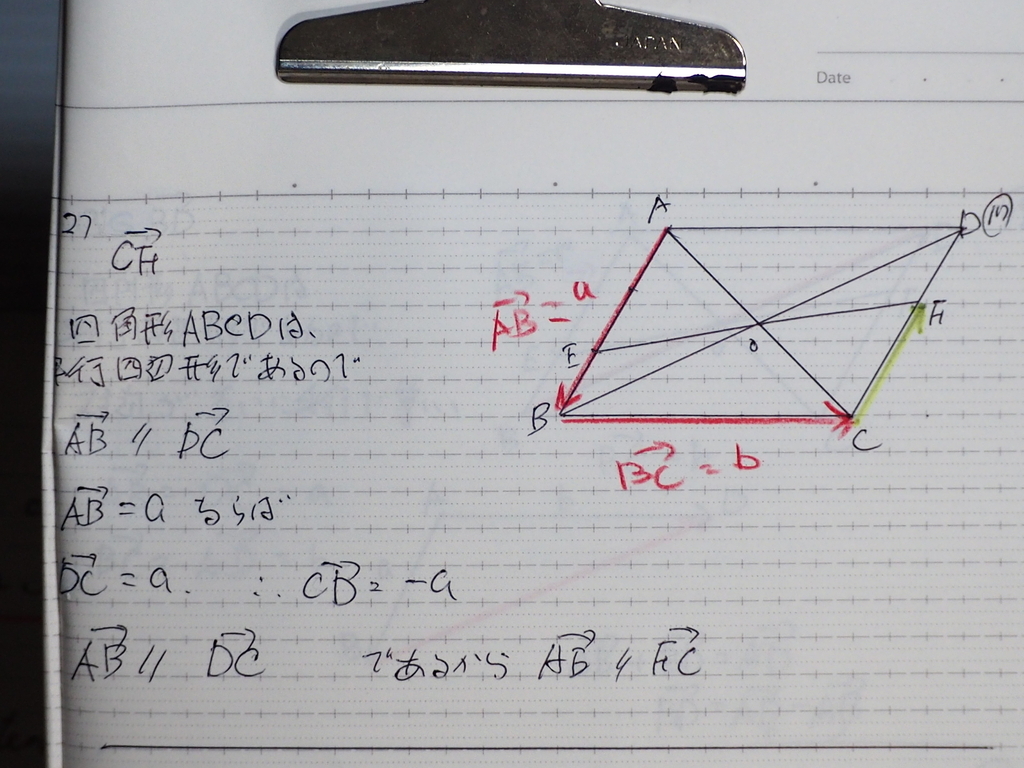 JAPAN
Date
27
CH
四角形ABCDは、
平行四辺形であるので
AB // DC
AB = a ならば
DC = a. ∴ CB = -a
AB // DC であるから AB // HC
A
D
AB = a
E
H
O
B
C
BC = b